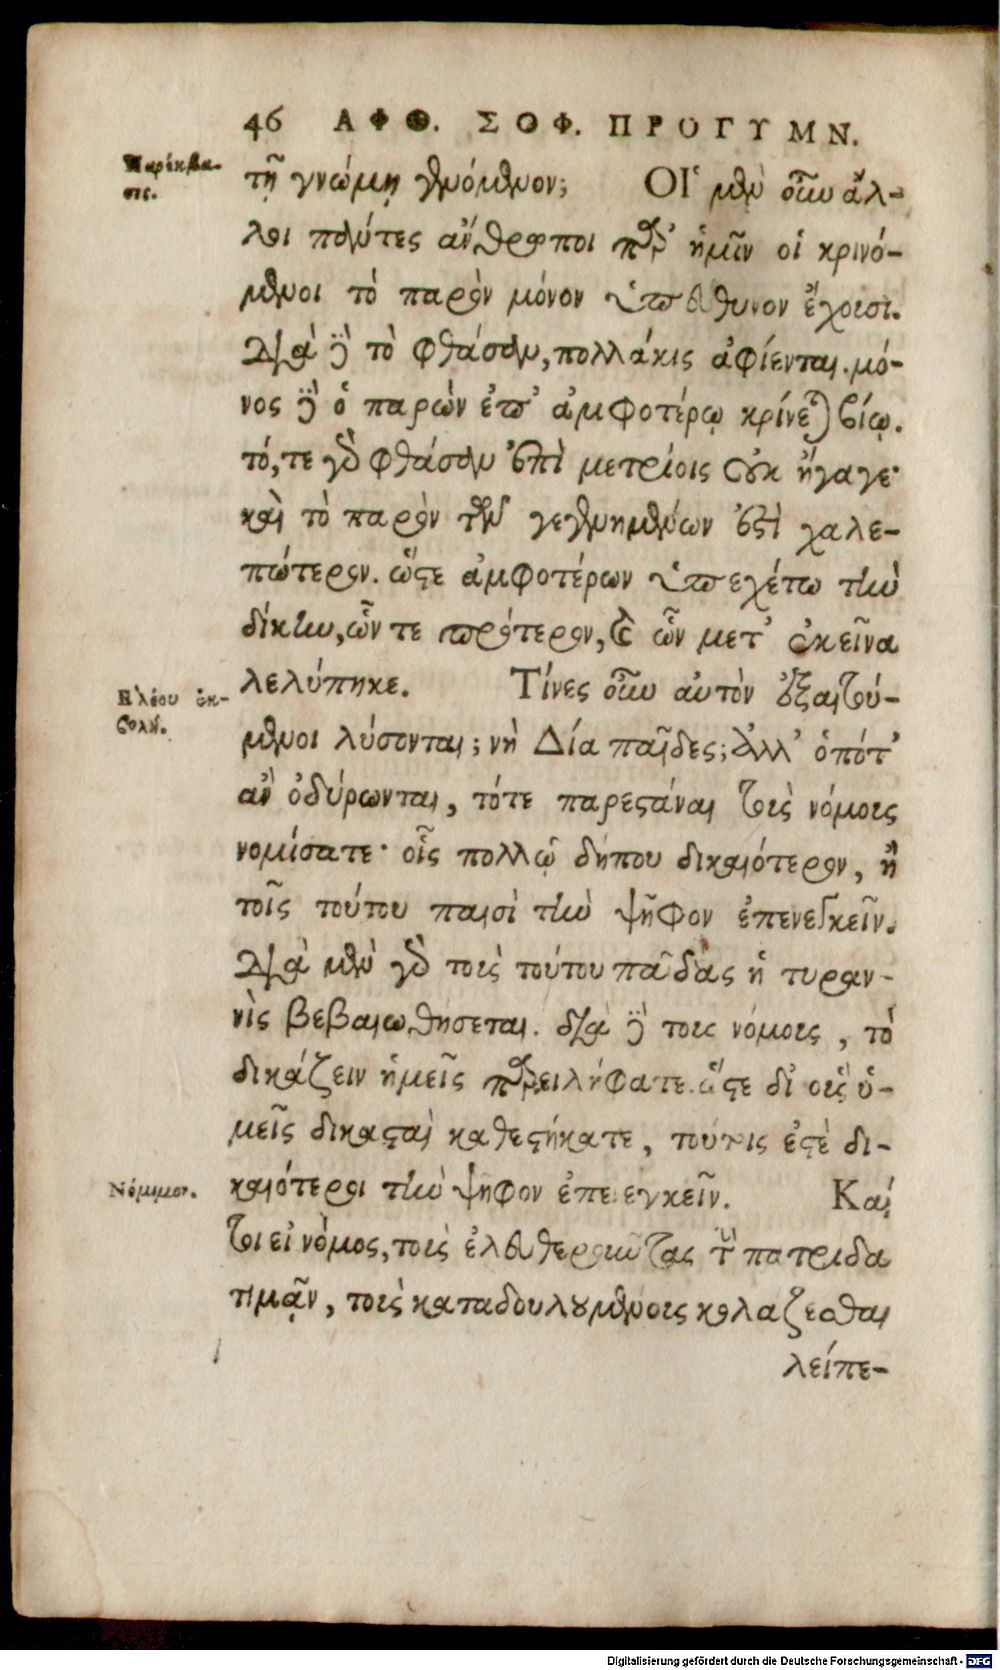 46 ΑΦΘ. ΣΟΦ. ΠΡΟΓΥΜΝ.
Παρέκβα-
σις.
τῇ γνώμῃ γενόμενον; Οἱ μὲν οὖν ἄλ-
λοι πάντες ἄνθρωποι παρ' ἡμῖν οἱ κρινό-
μενοι τὸ παρὸν μόνον ὑπεύθυνον ἔχουσι.
διὰ δὲ τὸ φθάσαν, πολλάκις ἀφίενται. μό-
νος δὲ ὁ παρὼν ἐπ' ἀμφοτέρῳ κρίνεται βίῳ.
τό, τε γὰρ φθάσαν ἐπὶ μετρίοις οὐκ ἤγαγε·
καὶ τὸ παρὸν τῶν γεγενημένων ἐστὶ χαλε-
πώτερον. ὥστε ἀμφοτέρων ὑπεχέτω τὴν
δίκην, ὧν τε πρότερον, καὶ ὧν μετ' ἐκεῖνα
λελύπηκε. Τίνες οὖν αὐτὸν ἐξαιτού-
Ἐλέου ἐκ-
βολή.
μενοι λύσονται; νὴ Δία παῖδες; ἀλλ' ὁπότ'
ἂν ὀδύρωνται, τότε παρεστάναι τοὺς νόμους
νομίσατε· οἷς πολλῷ δήπου δικαιότερον, ἢ
τοῖς τούτου παισὶ τὴν ψῆφον ἐπενεγκεῖν.
διὰ μὲν γὰρ τοὺς τούτου παῖδας ἡ τυραν-
νὶς βεβαιωθήσεται. διὰ δὲ τοὺς νόμους, τὸ
δικάζειν ἡμεῖς παρειλήφατε. ὥστε δι' οὓς ὑ-
μεῖς δικασταὶ καθεστήκατε, τούτοις ἐστὲ δι-
καιότεροι τὴν ψῆφον ἐπενεγκεῖν. Καί
Νόμιμον.
τοι εἰ νόμος, τοὺς ἐλευθεροῦντας τὴν πατρίδα
τιμᾷν, τοὺς καταδουλουμένους κολάζεσθαι
λείπε-
Digitalisierung gefördert durch die Deutsche Forschungsgemeinschaft - DFG